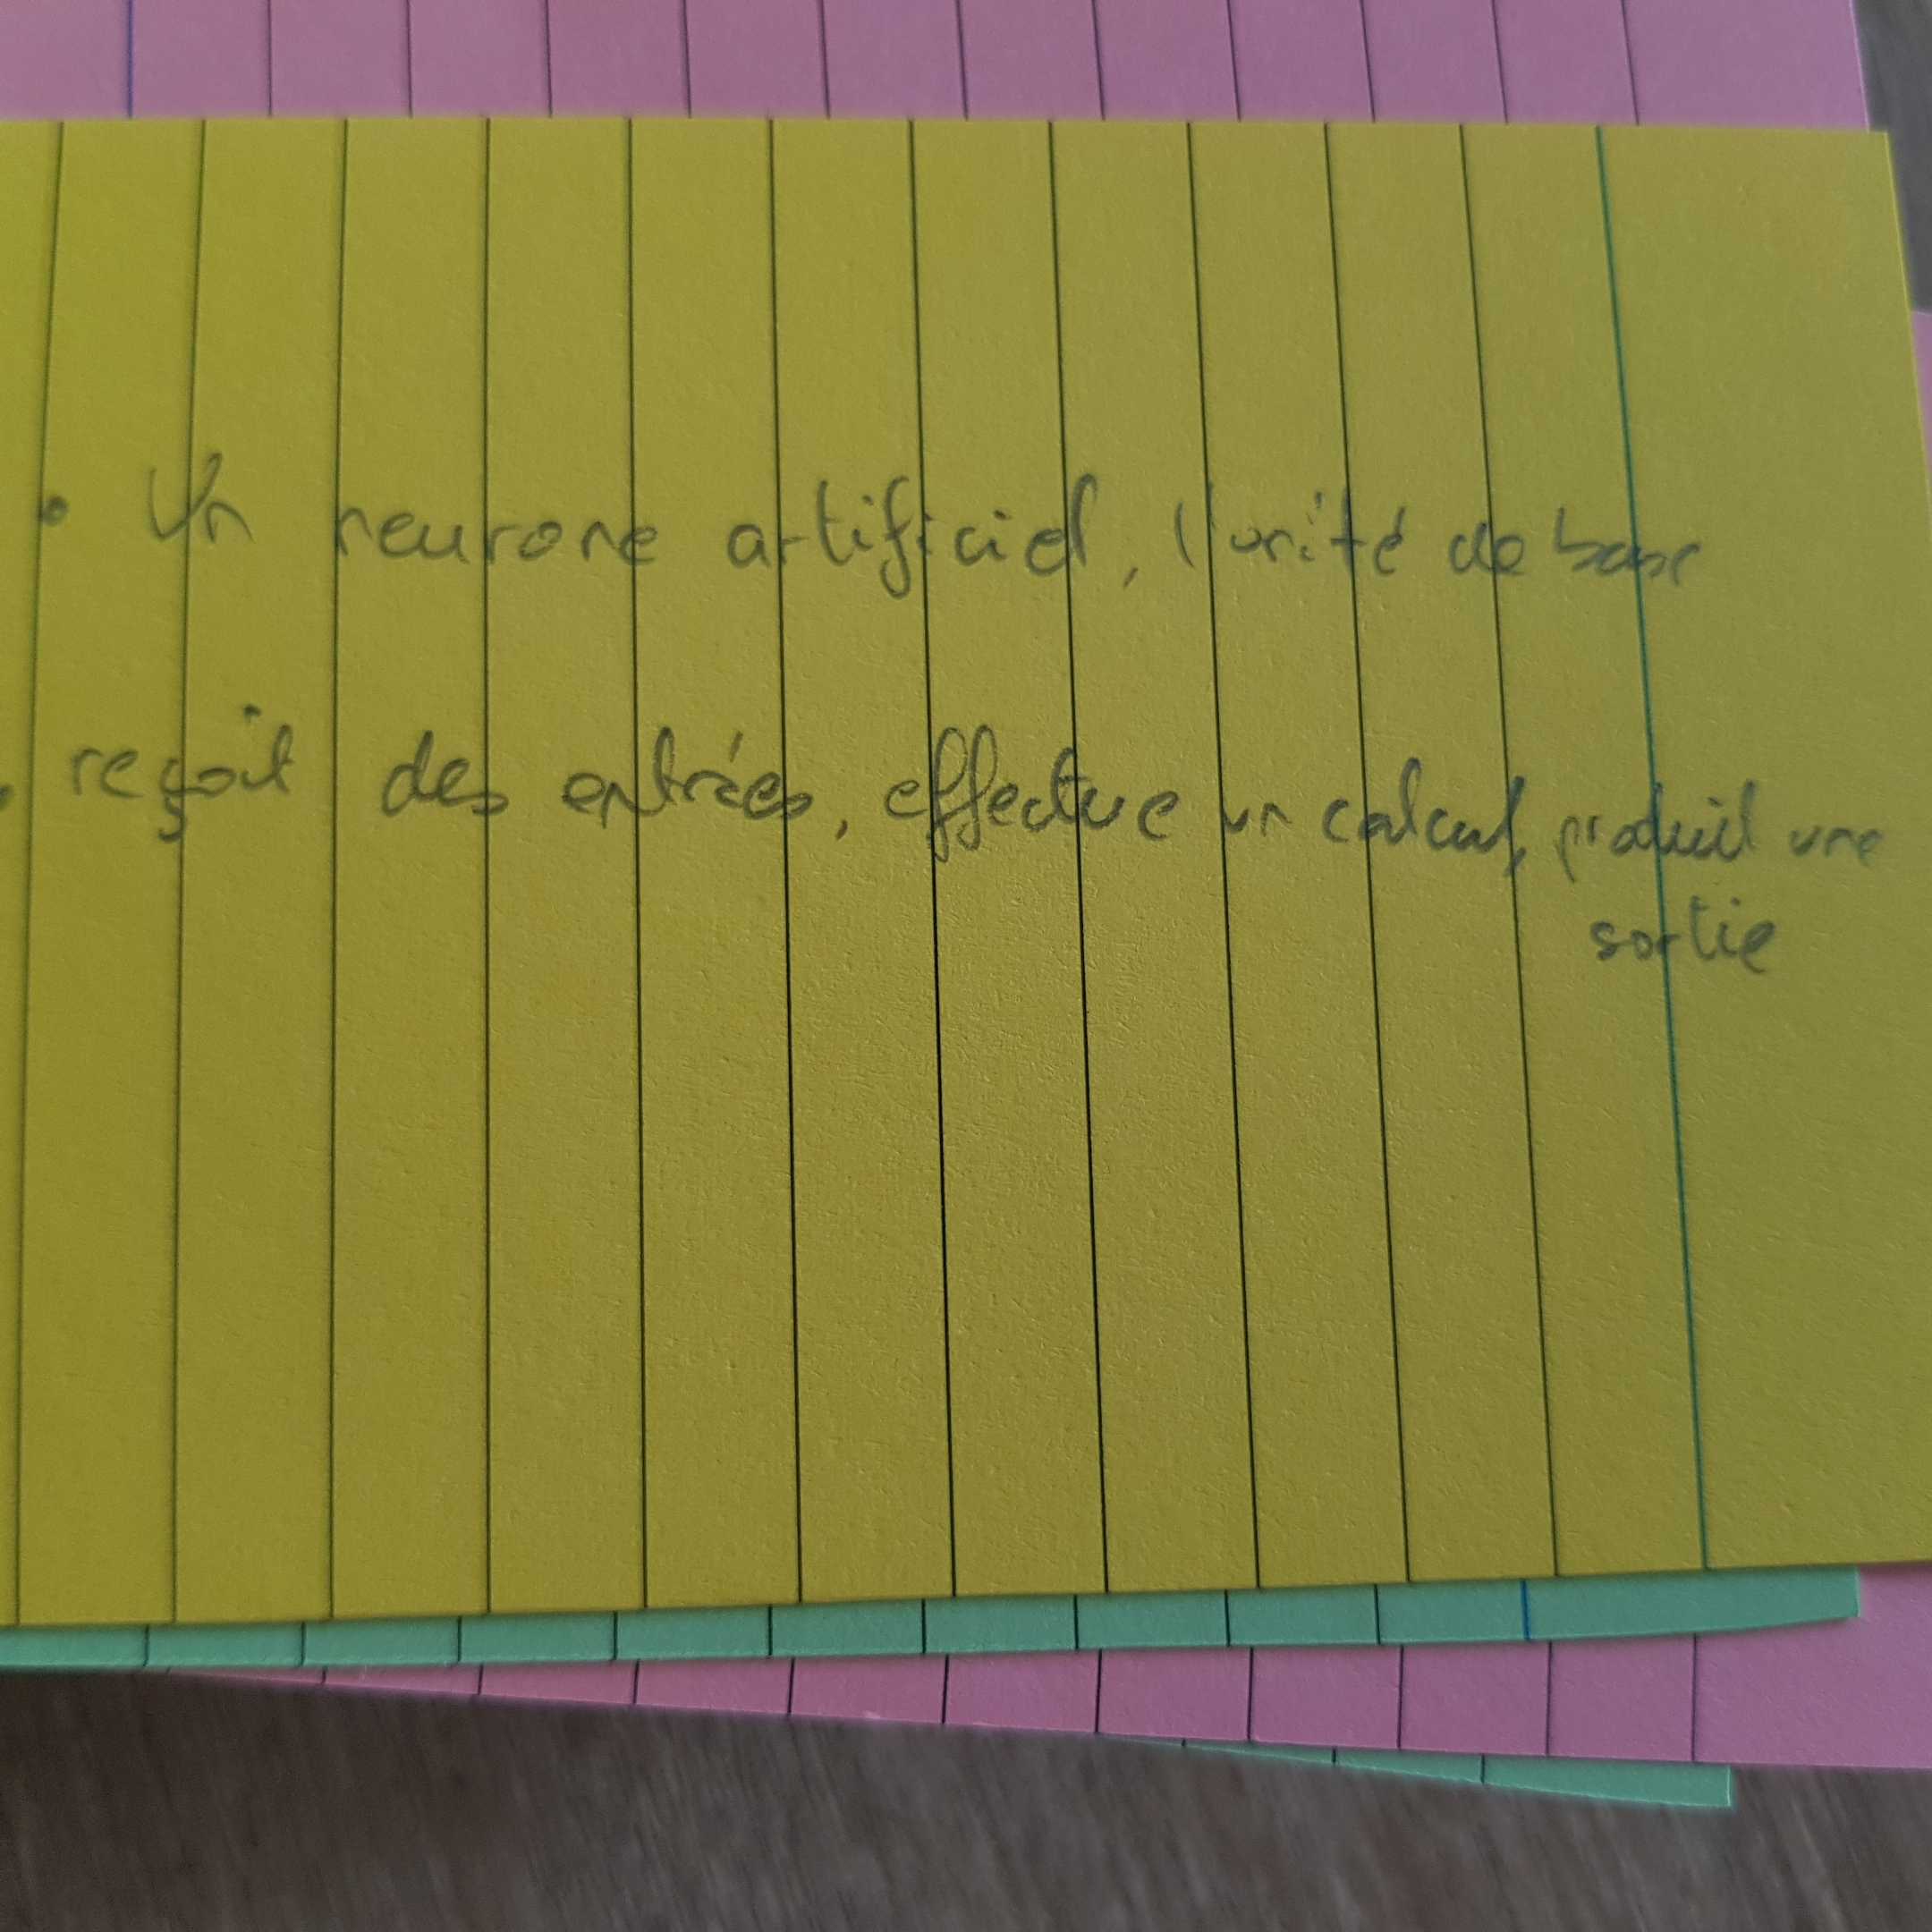 • Un neurone artificiel, l'unité de base
• reçoit des entrées, effectue un calcul, produit une
sortie